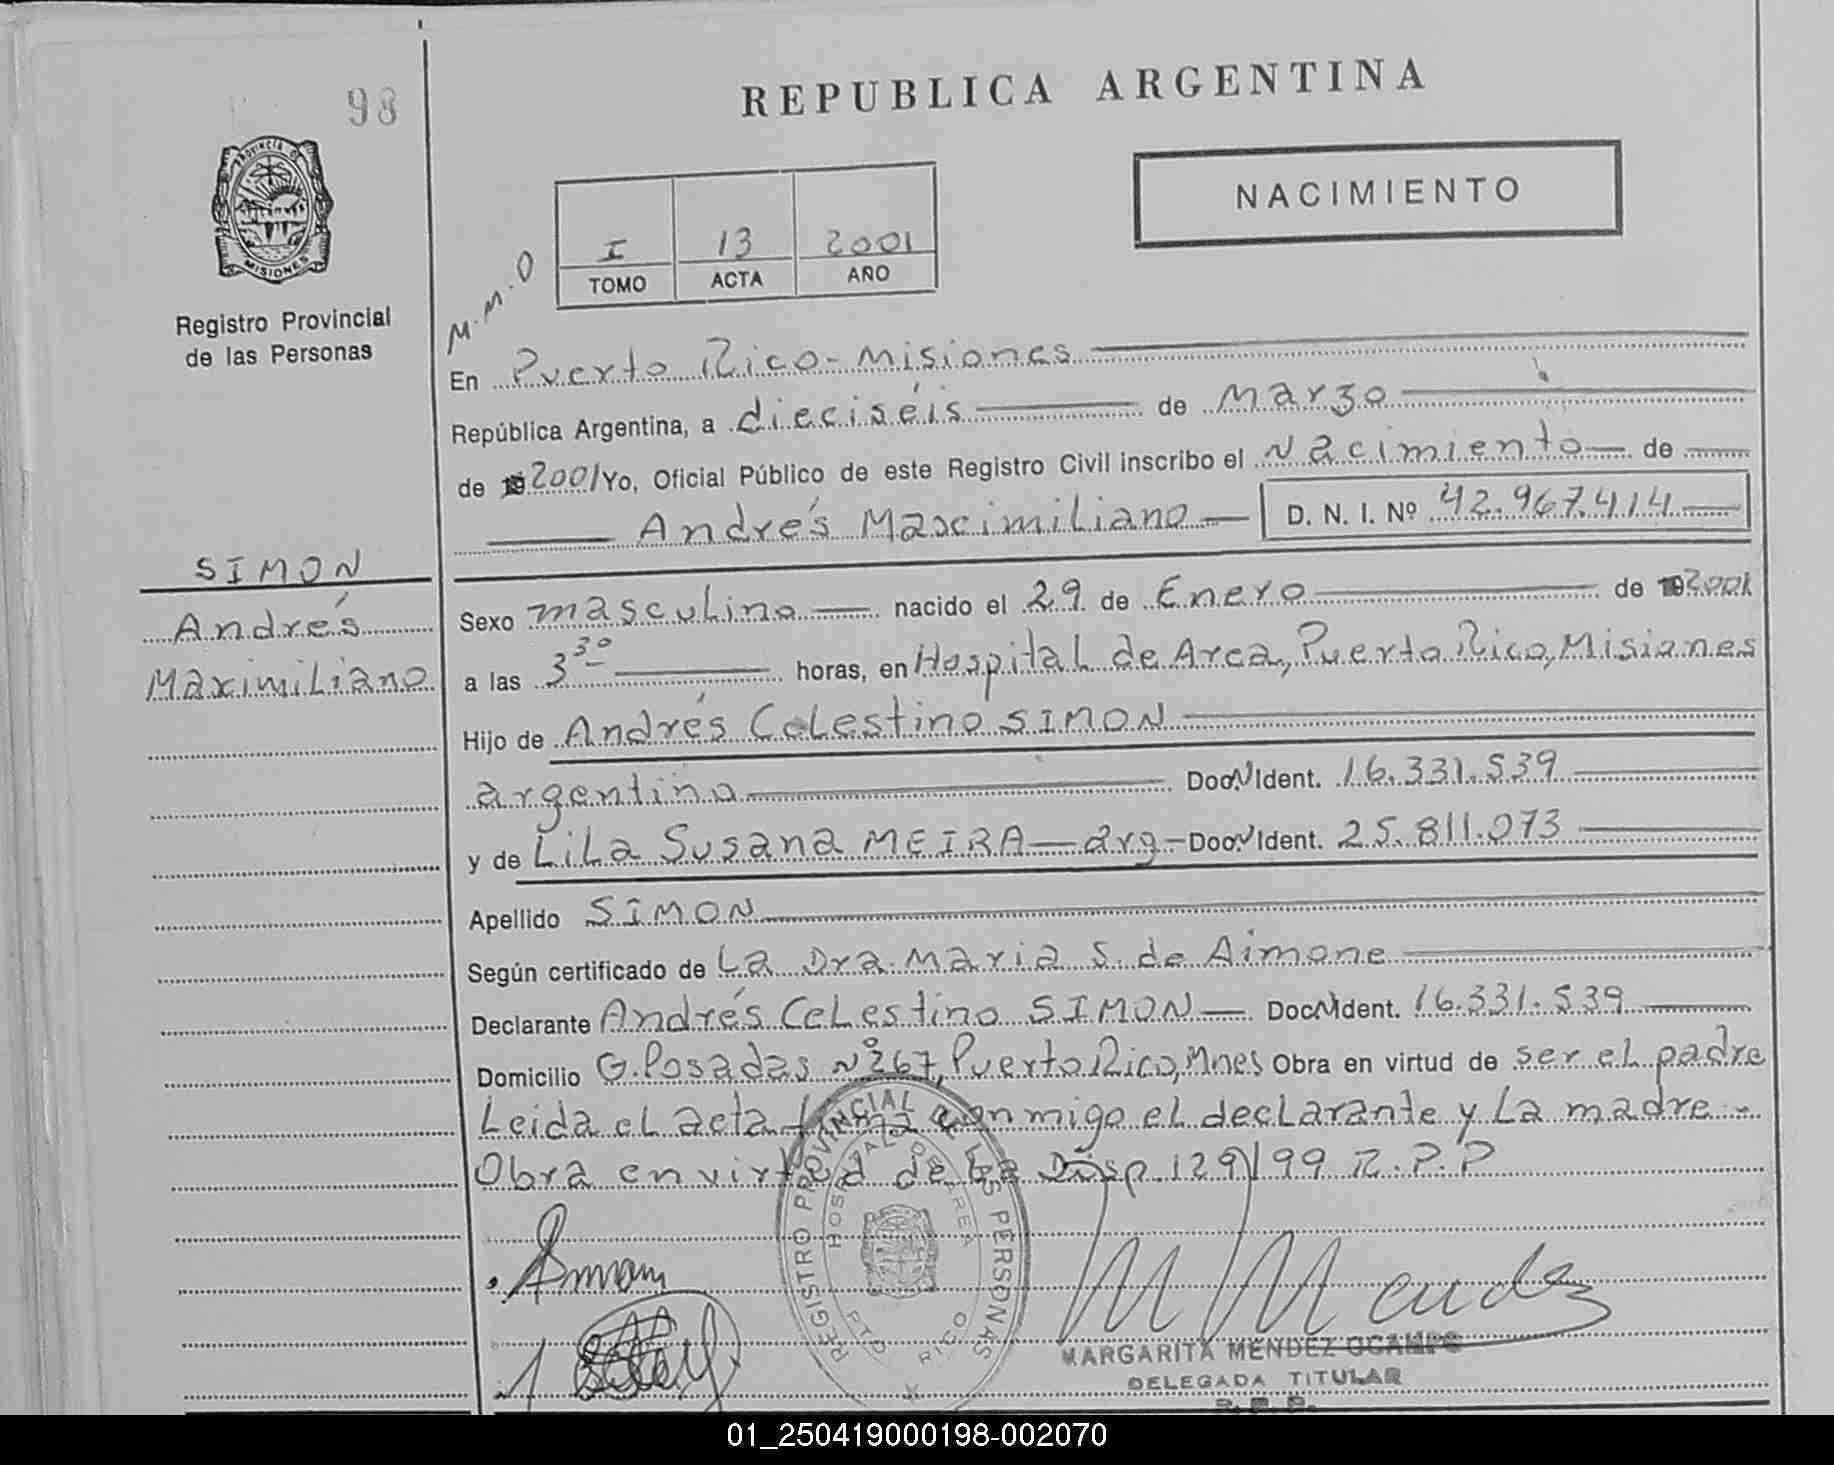 98
REPUBLICA ARGENTINA
PROVINCIA DE
MISIONES
NACIMIENTO
I 13 2001
TOMO ACTA AÑO
M.M.O
Registro Provincial
de las Personas
En Puerto Rico - Misiones
República Argentina, a dieciséis de Marzo
de 2001 Yo, Oficial Público de este Registro Civil inscribo el Nacimiento de
Andrés Maximiliano D. N. I. Nº 42.967.414
SIMON
Andrés
Maximiliano
Sexo masculino nacido el 29 de Enero de 2001
a las 3 30 horas, en Hospital de Area, Puerto Rico, Misiones
Hijo de Andrés Celestino SIMON
argentino Doc.N Ident. 16.331.539
y de Lila Susana MEIRA - arg - Doc.N Ident. 25.811.073
Apellido SIMON
Según certificado de La Dra. Maria S. de Aimone
Declarante Andrés Celestino SIMON Doc.N Ident. 16.331.539
Domicilio G. Posadas Nº 267, Puerto Rico, Mnes Obra en virtud de ser el padre
Leida el acta firma conmigo el declarante y La madre -
Obra en virtud de La Disp. 129/99 R.P.P
REGISTRO PROVINCIAL DE LAS PERSONAS
HOSPITAL DE AREA
PTO RICO
MARGARITA MENDEZ OCAMPO
DELEGADA TITULAR
R. P. P.
01_250419000198-002070